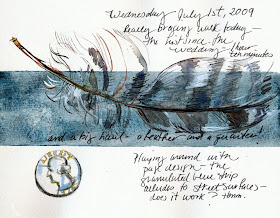 Wednesday July 1st, 2009
Really bracing walk today—
the first since the
wedding— 1 hour
ten minutes
and a big haul— a feather— and a quarter!
Playing around with
page design— the
granulated blue strip
alludes to street surfaces—
does it work? Hmm.